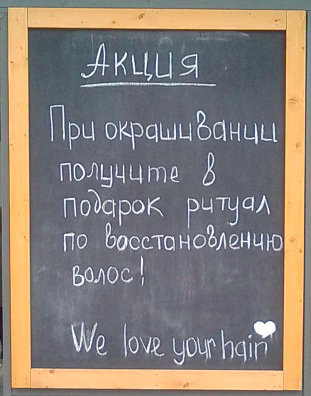 Акция
При окрашивании
получите в
подарок ритуал
по восстановлению
волос!
We love your hair